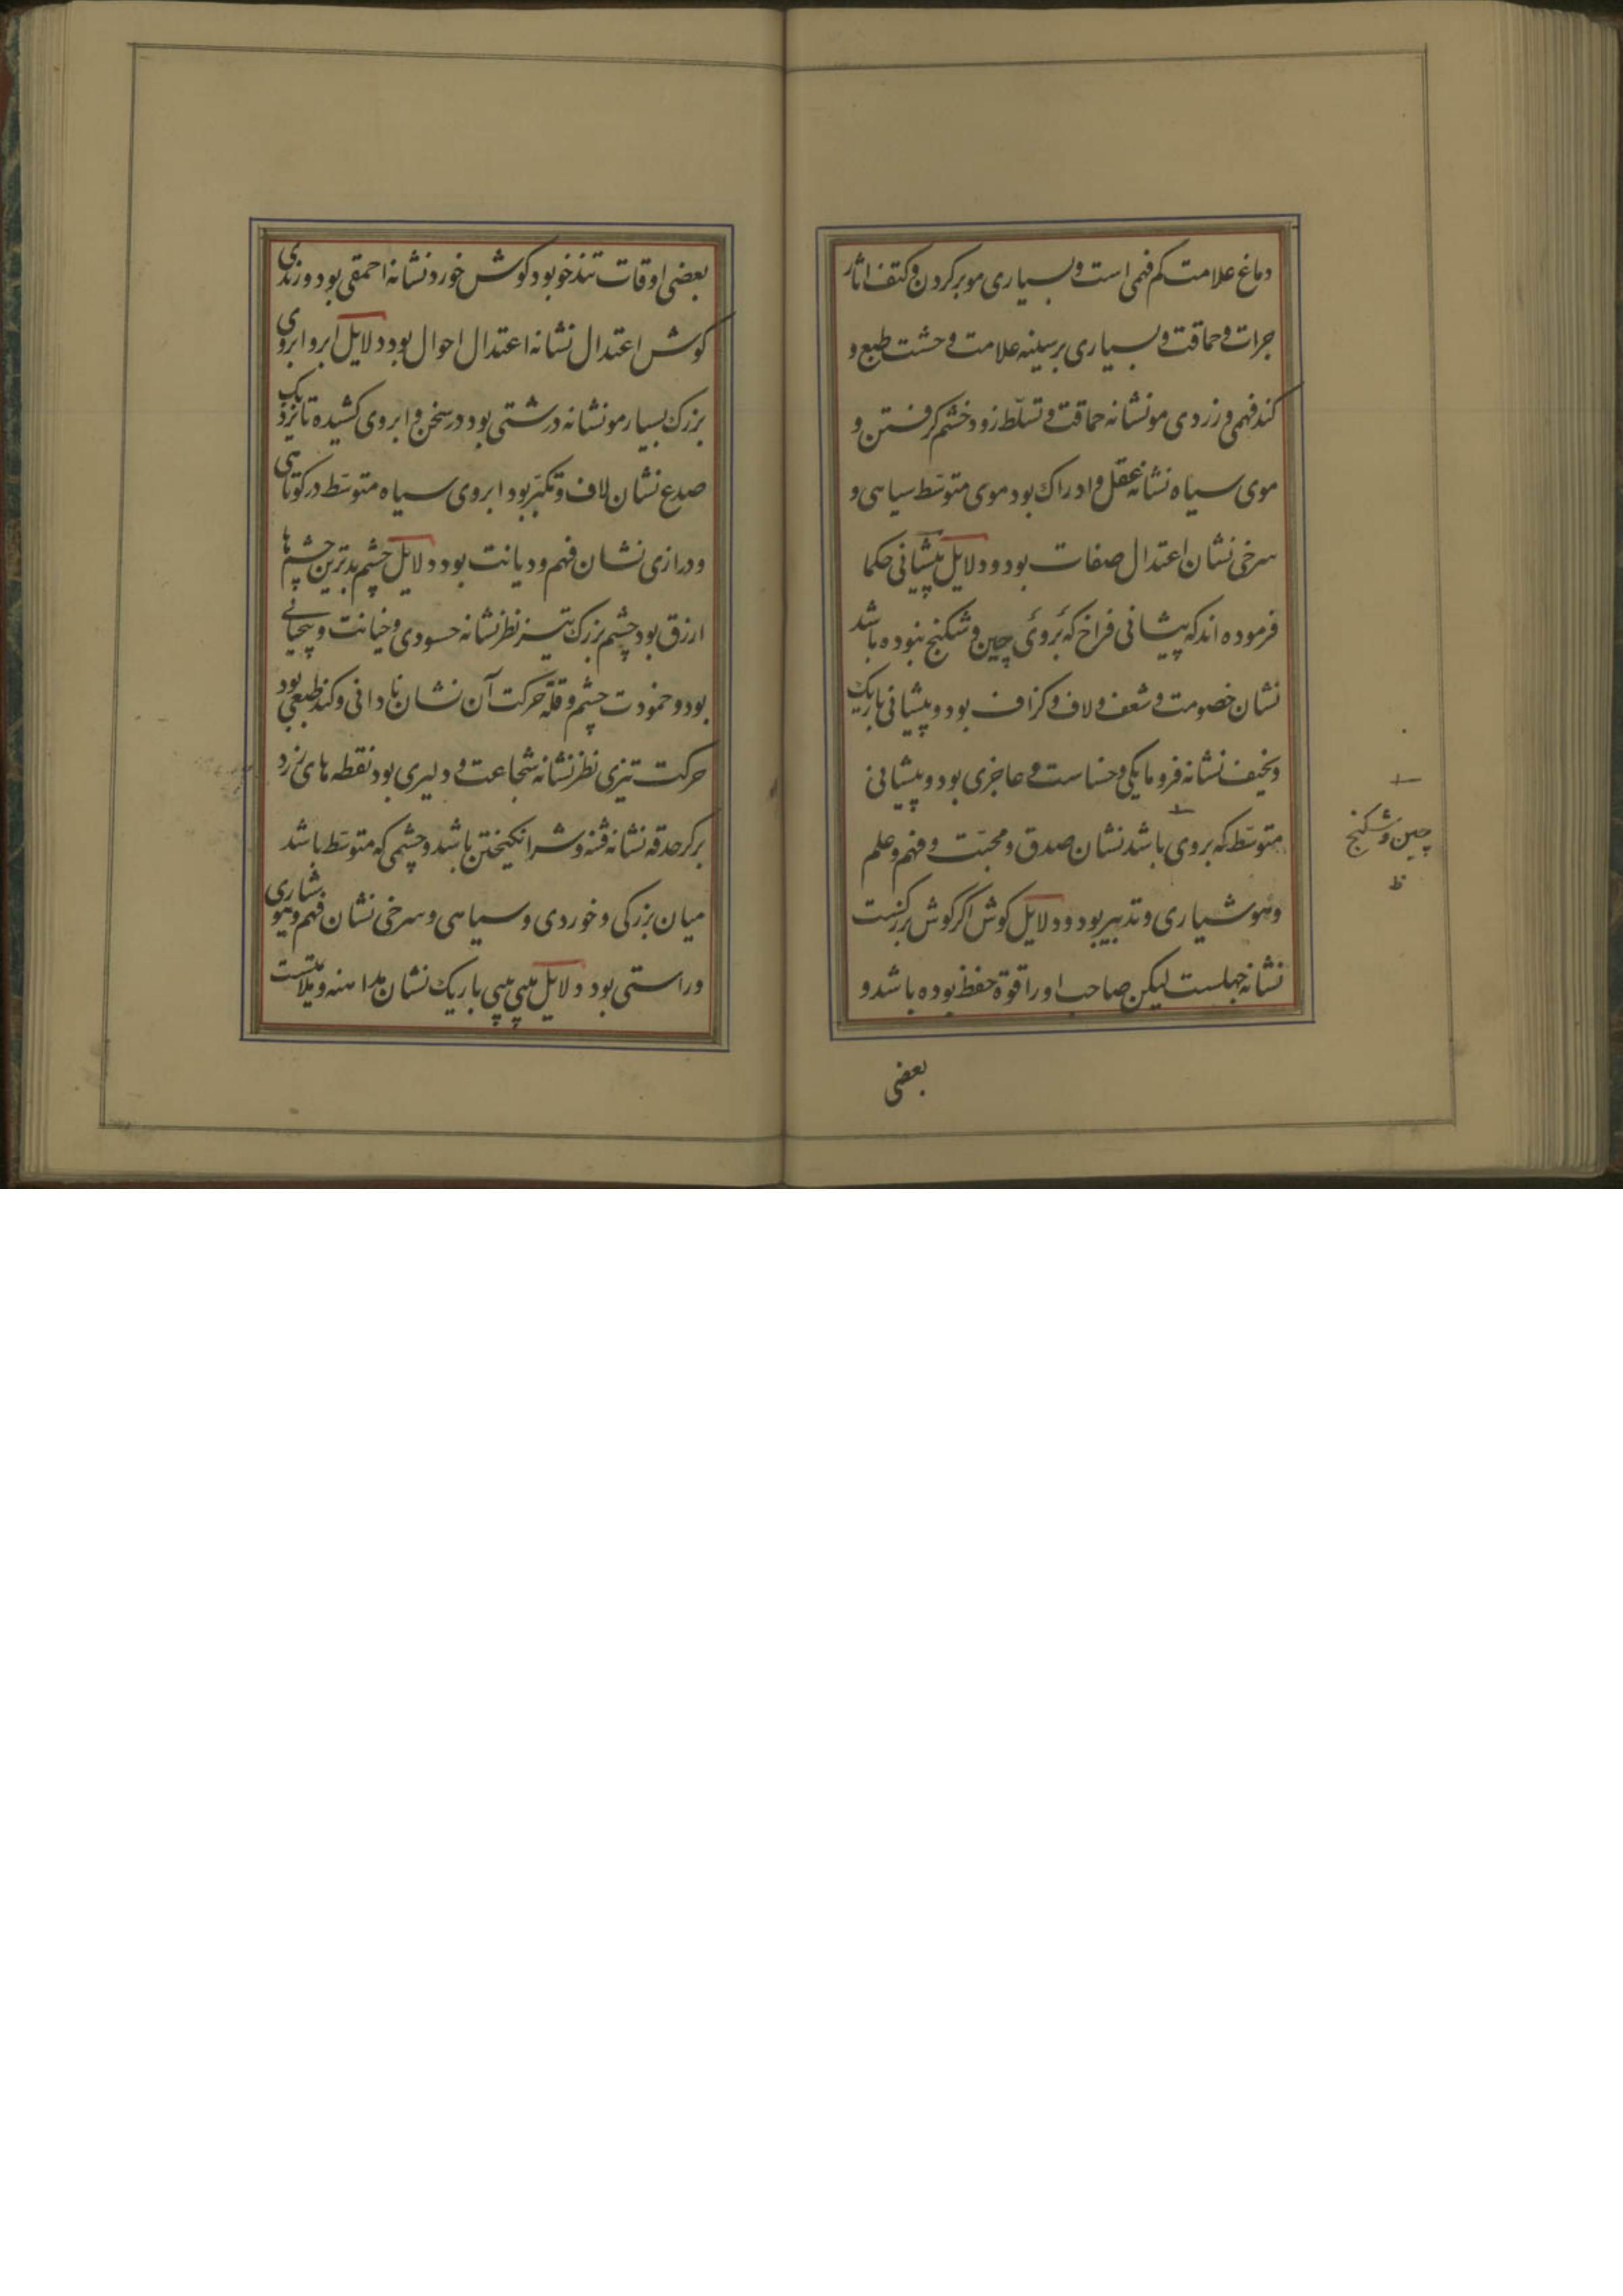 دماغ علامت کم فهمی است و بسیاری مو بر کردن و کتف اثار
جرات و حماقت و بسیاری بر سینه علامت و حشت طبع و
کند فهمی و زردی مو نشانه حماقت و تسلّط زود خشم کرفتن و
موی سیاه نشانه عقل و ادراک بود موی متوسّط سیاهی و
سرخی نشان اعتدال صفات بود و دلایل پیشانی حکما
فرموده اند که پیشانی فراخ که بروئی چین و شکنج نبوده باشد
نشان خصومت و شعف و لاف و کزاف بود و پیشانی باریک
و نحیف نشانه فرومایکی و خساست و عاجزی بود و پیشانی
متوسّط که بروی باشد نشان صدق و محبّت و فهم و علم
چین و شکنج
ظ
و هوشیاری و تدبیر بود و دلایل کوش اکر کوش بزرکست
نشانه جهلست لیکن صاحب او را قوة حفظ بوده باشد و
بعضی
بعضی اوقات تندخو بود کوش خورد نشانه احمقی بود و دزدی
کوش اعتدال نشانه اعتدال احوال بود دلایل ابرو ابروی
بزرک بسیار مو نشانه درشتی بود در سخن و ابروی کشیده تا نزدیک
صدع نشان لاف و تکبّر بود ابروی سیاه متوسّط در کوتاهی
و درازی نشان فهم و دیانت بود دلایل چشم بدترین چشم ها
ازرق بود چشم بزرک تیز نظر نشانه حسودی و خیانت و بیحیائی
بود و خمودت چشم و قلّة حرکت آن نشان نادانی و کند طبعی بود
حرکت تیزی نظر نشانه شجاعت و دلیری بود نقطه های زرد
بر کرد حدقه نشانه فتنه و شر انکیختن باشد و چشمی که متوسّط باشد
میان بزرکی و خوردی و سیاهی و سرخی نشان فهم و هوشیاری
و راستی بود دلایل بینی بینی باریک نشان مداهنه و